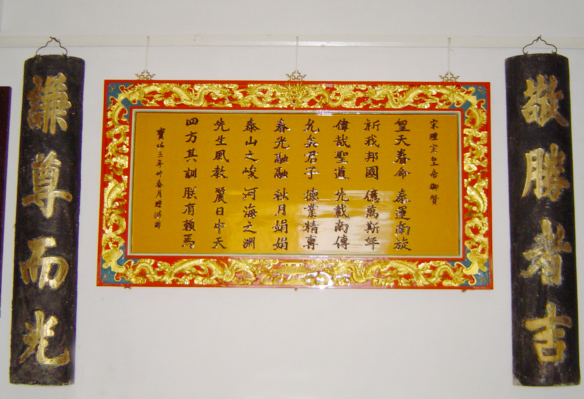 敬勝者吉
宋理宗皇帝御贊
皇天眷命 泰運南旋
祈我邦國 億萬斯年
偉哉聖道 載南傳
允矣君子 德業精專
春光融融 秋月娟娟
泰山之峻 河海之淵
先生風教 麗日中天
四方其訓 朕有賴焉
寶祐三年 春月
謙尊而光